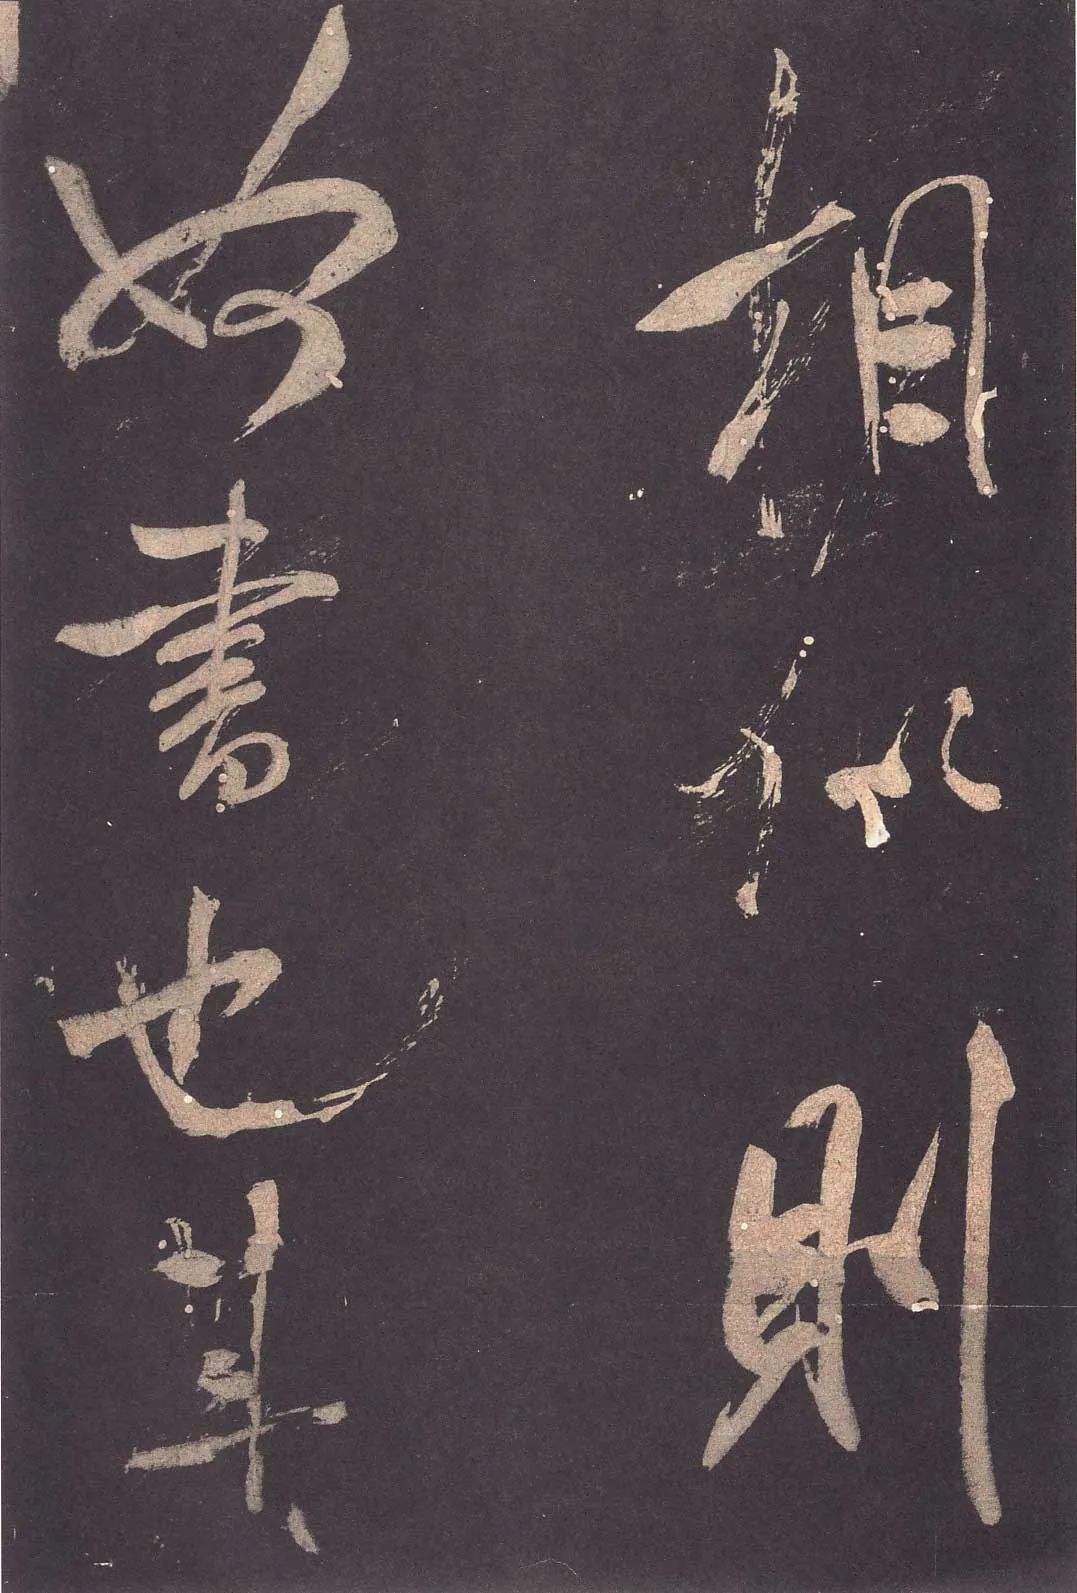 相似則
奴書也其